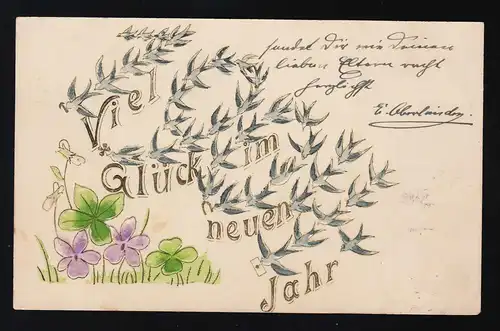 Viel
Glück im
neuen
Jahr
sendet Dir wie Deinen
lieben Eltern recht
herzlichst
E. Oberländer